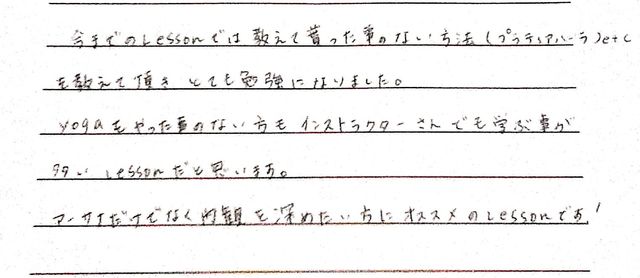 今までのLessonでは教えて貰った事のない方法(プラティアハーラ)etc
を教えて頂き とても勉強になりました。
yogaをやった事のない方も インストラクターさんでも学ぶ事が
多い Lessonだと思います。
アーサナだけでなく内観を深めたい方にオススメのLessonです!